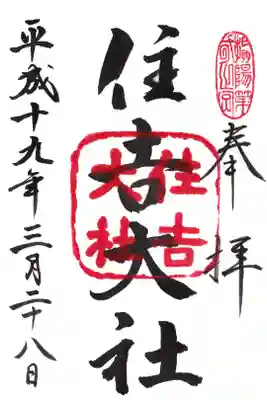 奉拝
住吉大社
住吉大社
平成十九年三月二十八日